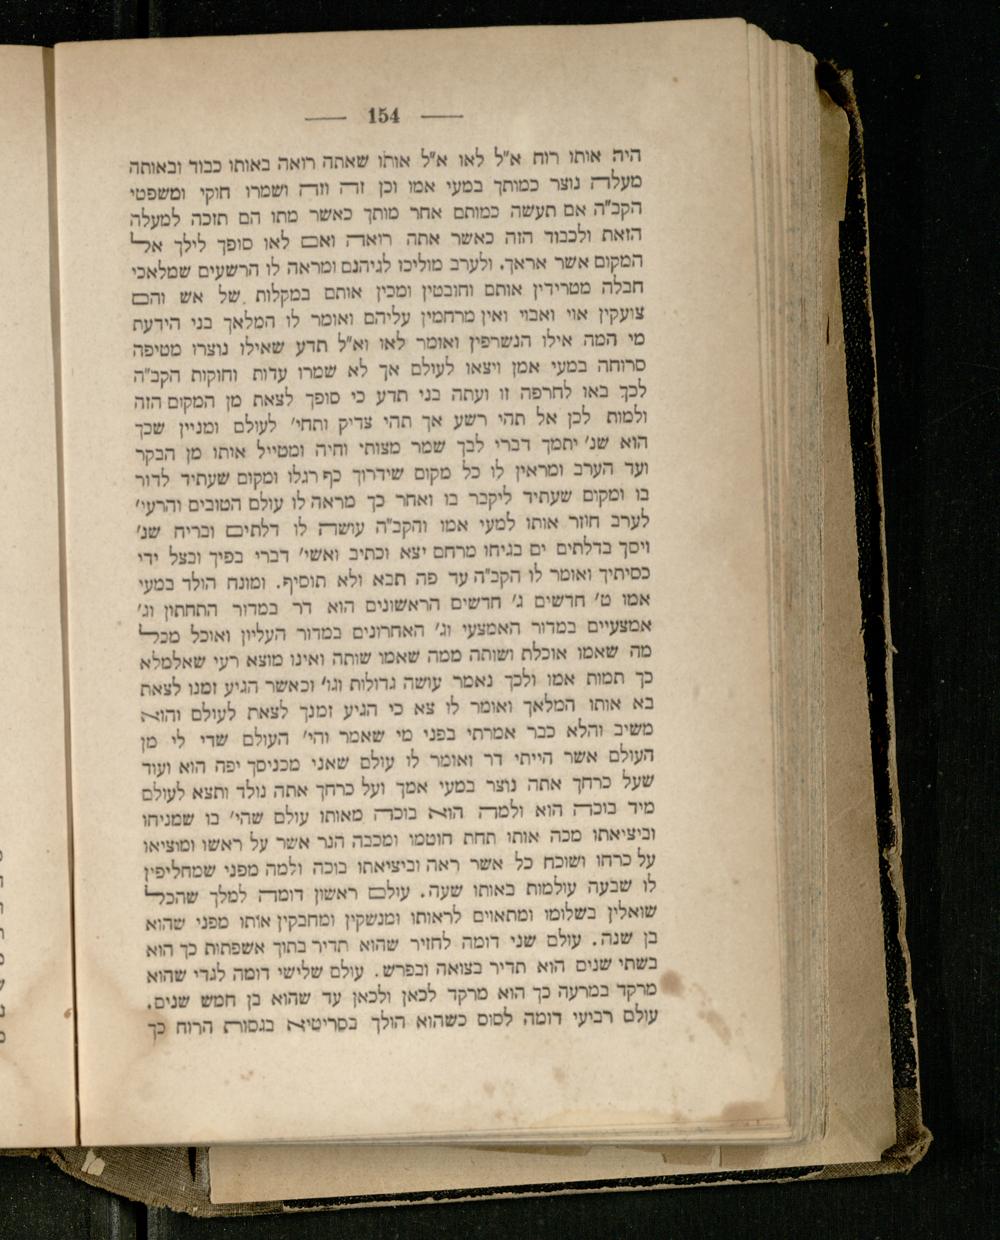 — 154 —
היה אותו רוח א"ל לאו א"ל אותו שאתה רואה באותו כבוד ובאותה
מעלה נוצר כמותך במעי אמו וכן זה וזה ושמרו חוקי ומשפטי
הקב"ה אם תעשה כמותם אחר מותך כאשר מתו הם תזכה למעלה
הזאת ולכבוד הזה כאשר אתה רואה ואם לאו סופך לילך אל
המקום אשר אראך. ולערב מוליכו לגיהנם ומראה לו הרשעים שמלאכי
חבלה מטרידין אותם וחובטין ומכין אותם במקלות של אש והם
צועקין אוי ואבוי ואין מרחמין עליהם ואומר לו המלאך בני הידעת
מי המה אילו הנשרפין ואומר לאו וא"ל תדע שאילו נוצרו מטיפה
סרוחה במעי אמן ויצאו לעולם אך לא שמרו עדות וחוקות הקב"ה
לכך באו לחרפה זו ועתה בני תדע כי סופך לצאת מן המקום הזה
ולמות לכן אל תהי רשע אך תהי צדיק ותחי' לעולם ומניין שכך
הוא שנ' יתמך דברי לבך שמר מצותי וחיה ומטייל אותו מן הבקר
ועד הערב ומראין לו כל מקום שידרוך כף רגלו ומקום שעתיד לדור
בו ומקום שעתיד ליקבר בו ואחר כך מראה לו עולם הטובים והרעי'
לערב חוזר אותו למעי אמו והקב"ה עושה לו דלתים ובריח שנ'
ויסך בדלתים ים בגיחו מרחם יצא וכתיב ואשי' דברי בפיך ובצל ידי
כסיתיך ואומר לו הקב"ה עד פה תבא ולא תוסיף. ומונח הולד במעי
אמו ט' חדשים ג' חדשים הראשונים הוא דר במדור התחתון וג'
אמצעיים במדור האמצעי וג' האחרונים במדור העליון ואוכל מכל
מה שאמו אוכלת ושותה ממה שאמו שותה ואינו מוצא רעי שאלמלא
כך תמות אמו ולכך נאמר עושה גדולות וגו' וכאשר הגיע זמנו לצאת
בא אותו המלאך ואומר לו צא כי הגיע זמנך לצאת לעולם והוא
משיב והלא כבר אמרתי בפני מי שאמר והי' העולם שדי לי מן
העולם אשר הייתי דר ואומר לו עולם שאני מכניסך יפה הוא ועוד
שעל כרחך אתה נוצר במעי אמך ועל כרחך אתה נולד ותצא לעולם
מיד בוכה הוא ולמה הוא בוכה מאותו עולם שהי' בו שמניחו
וביציאתו מכה אותו תחת חוטמו ומכבה הנר אשר על ראשו ומוציאו
על כרחו ושוכח כל אשר ראה וביציאתו בוכה ולמה מפני שמחליפין
לו שבעה עולמות באותו שעה. עולם ראשון דומה למלך שהכל
שואלין בשלומו ומתאוים לראותו ומנשקין ומחבקין אותו מפני שהוא
בן שנה. עולם שני דומה לחזיר שהוא תדיר בתוך אשפתות כך הוא
בשתי שנים הוא תדיר בצואה ובפרש. עולם שלישי דומה לגדי שהוא
מרקד במרעה כך הוא מרקד לכאן ולכאן עד שהוא בן חמש שנים.
עולם רביעי דומה לסוס כשהוא הולך בסריטיא בגסורת הרוח כך